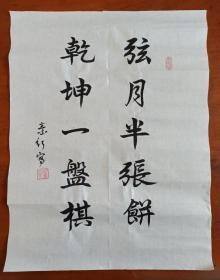 弦月半張餅
乾坤一盤棋